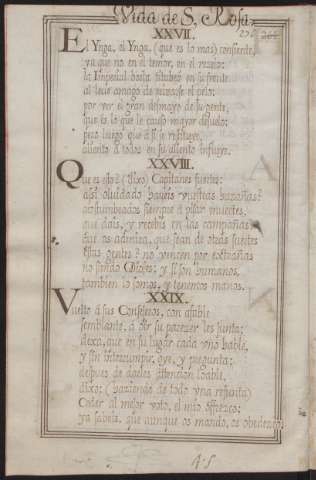 Vida de S. Rosa.
XXVII.
El Ynga, el Ynga, (que es lo mas) consiente,
ya que no en el temor, en el rezelo:
la Imperial borla titubeó en su frente
al leve amago de
por ver el gran desmayo de su gente,
que es lo que le causo mayor desvelo:
pero luego que á sí se restituye,
aliento á todos en su aliento influye.
XXVIII.
Que es esto? (dixo) Capitanes fuertes:
assi olvidado haveis vuestras hazañas?
acostumbrados siempre á pisar muertes,
que dais, y recibis en las campañas?
Que os admira, que sean de otras suertes
estas gentes? no vencen por extrañas
no siendo Dioses; y si son humanos,
tambien lo somos, y tenemos manos.
XXIX.
Vuelto á sus Consejeros, con afable
semblante, á dar su parecer les junta;
dexa, que en su lugar cada uno hable,
y sin interrumpir, oye, y pregunta;
despues de darles attencion loable,
dixo: (haziendo de todo una resunta)
Ceder al mejor voto, el mio offrezco;
ya sabeis, que aunque os mando, os obedezco.